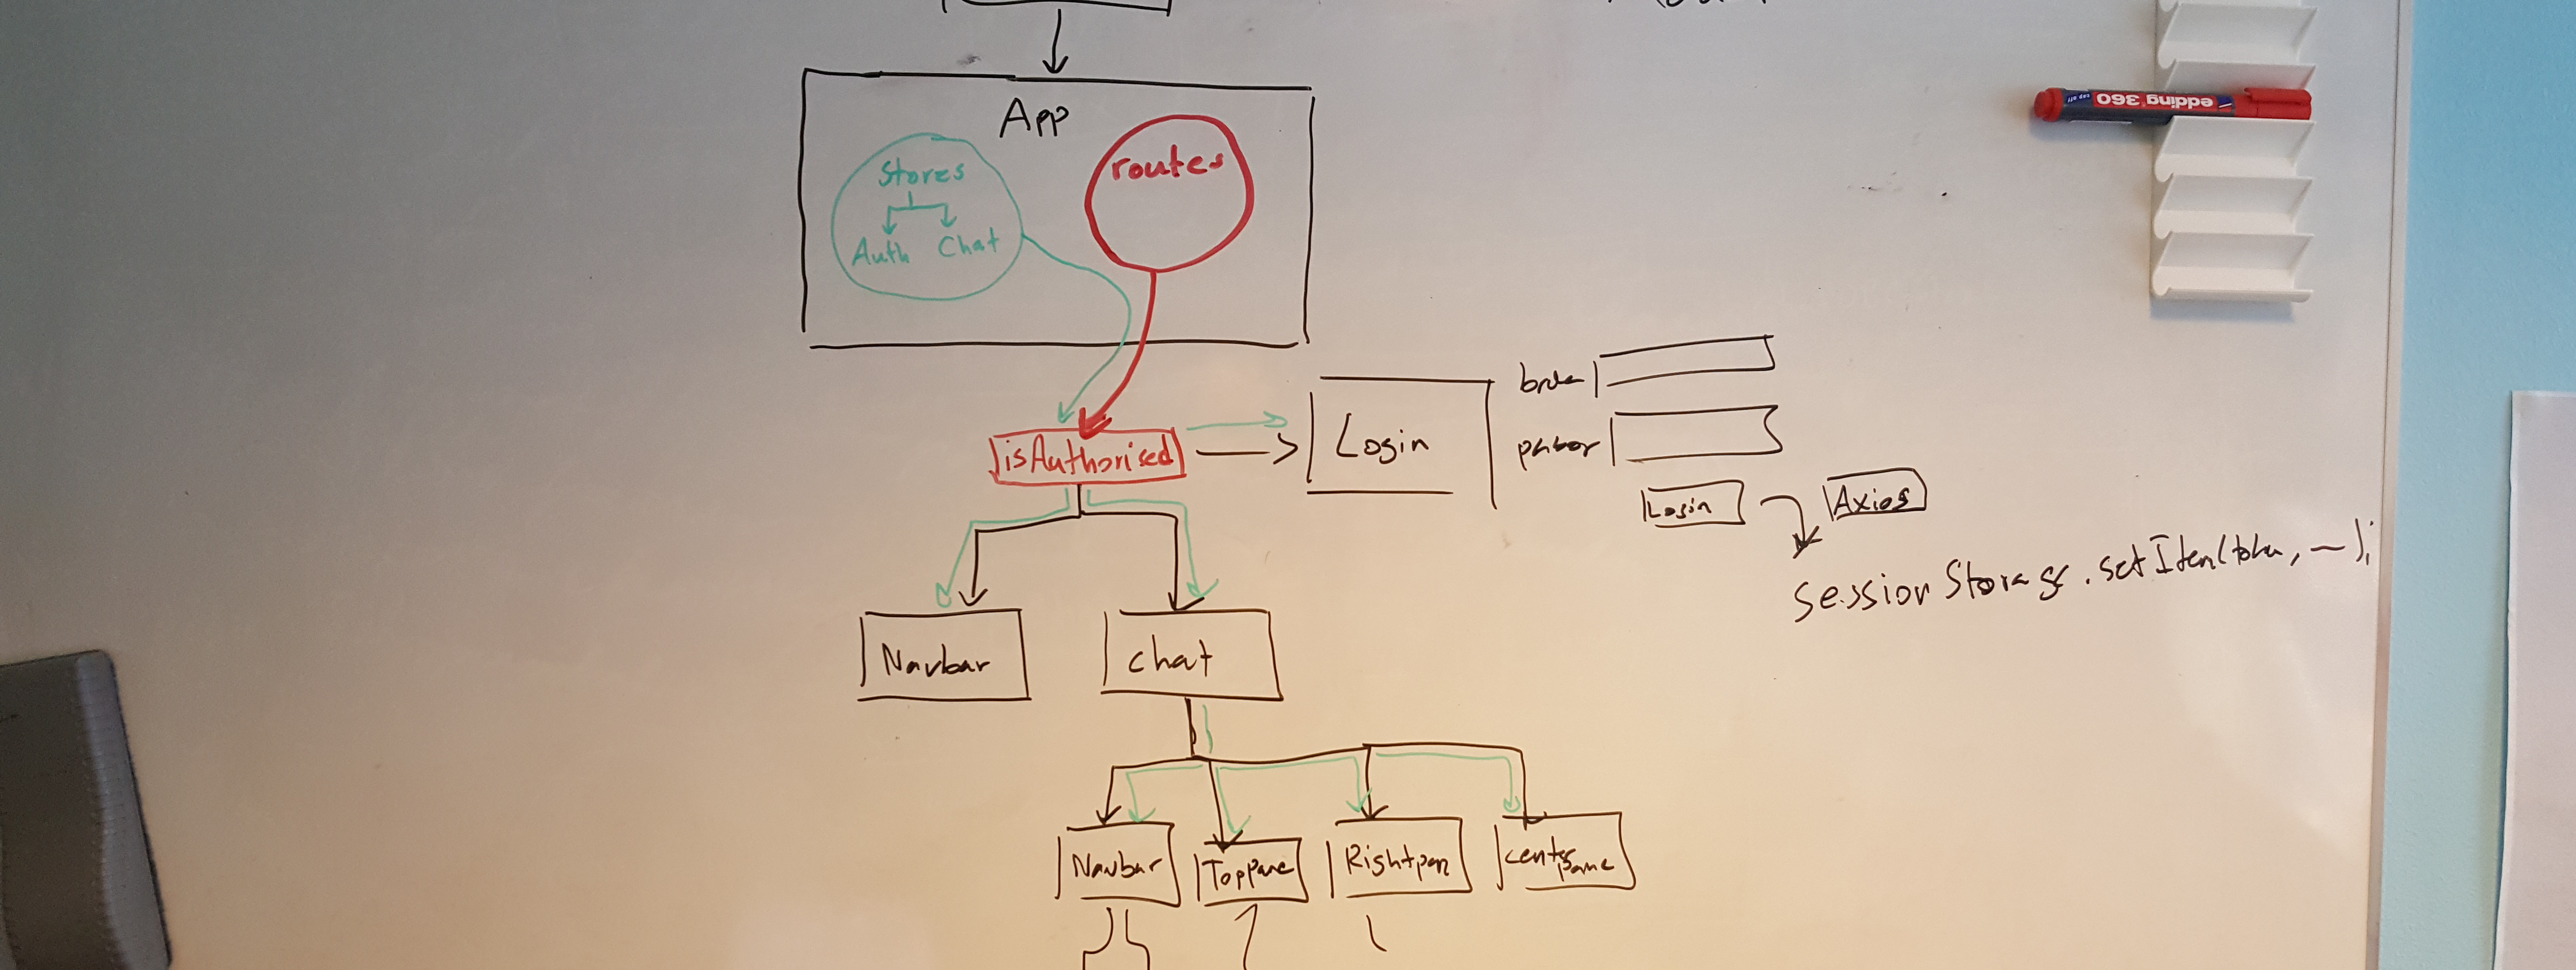 App
Stores
Auth Chat
routes
isAuthorised
Login
Login
Axios
Session Storage.setItem(token, —);
Navbar
chat
Navbar
TopPane
Rightpan
CenterPane
edding 360
cap off